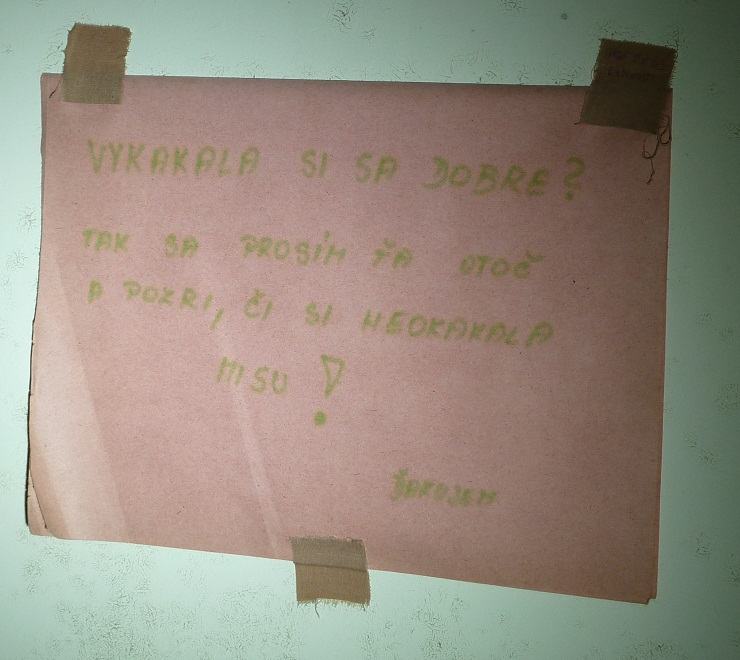 VYKAKALA SI SA DOBRE?
TAK SA PROSÍM ŤA OTOČ
A POZRI, ČI SI NEOKAKALA
MISU!
ĎAKUJEM